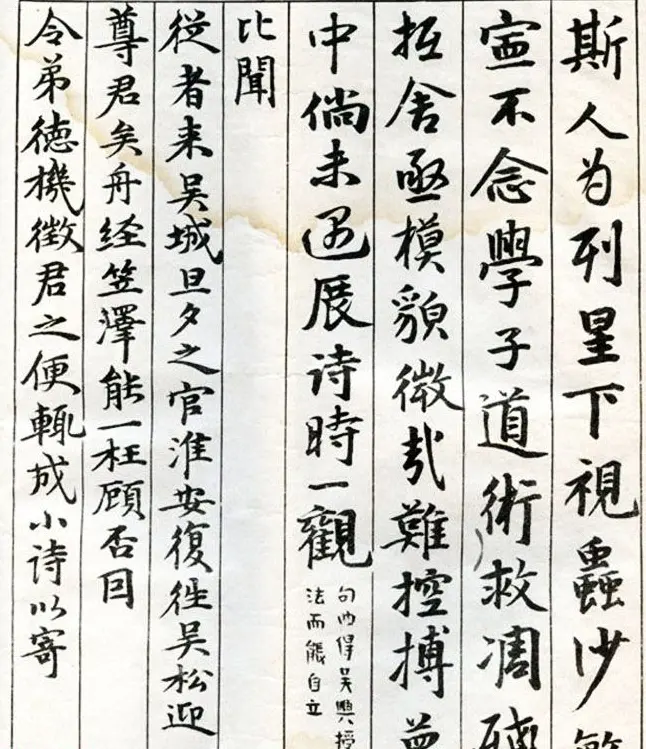 斯人为列星下視蟲沙
寍不念學子道術救凋
抵舍亟模貌微哉難控搏
中倘未遇展诗時一觀
句内得吴興授
法而能自立
比聞
從者来吴城旦夕之官淮安復往吴松迎
尊君矣舟经笠澤能一枉顾否因
令弟徳機徵君之便輒成小诗以寄